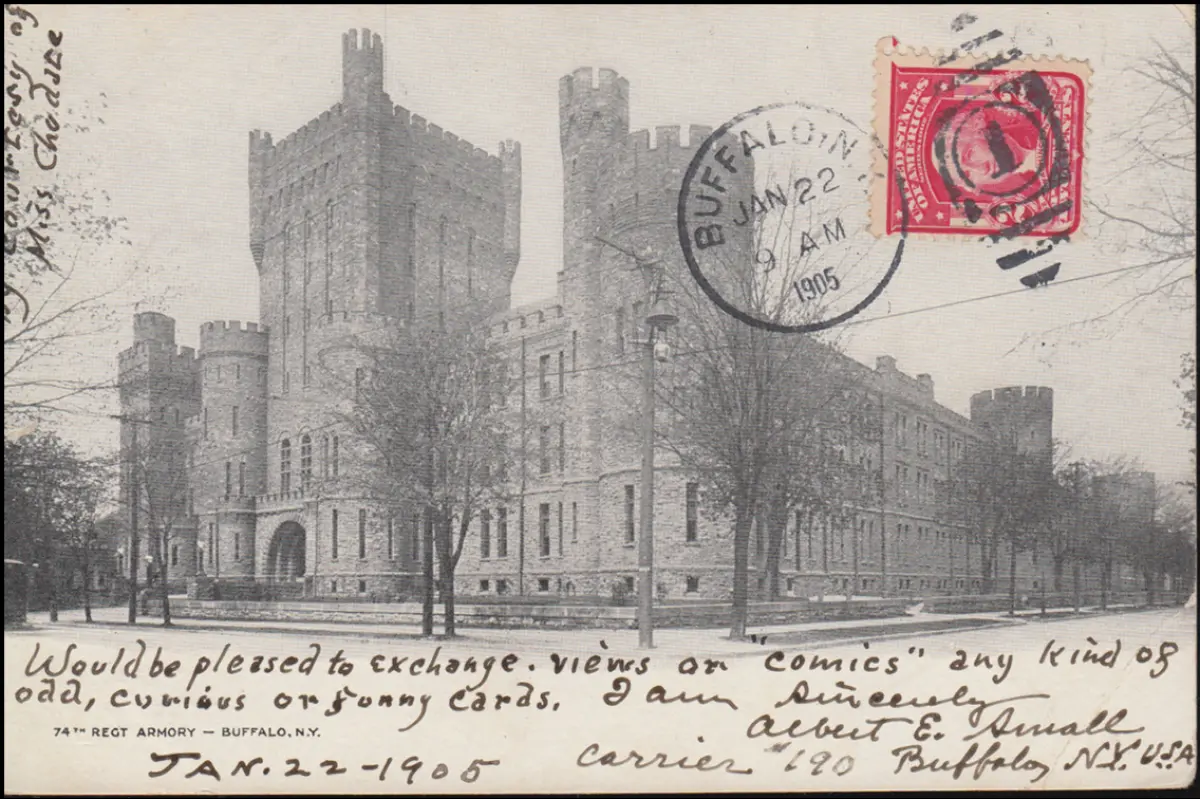 by courtesy of
Miss Chedsae
BUFFALO, N.
JAN 22
9 AM
1905
UNITED STATES
OF AMERICA
1
2
Would be pleased to exchange. views or "comics" any kind of
odd, curious or funny cards. I am Sincerely
74TH REGT ARMORY — BUFFALO, N.Y.
Albert E. Small
JAN. 22 - 1905
carrier #190 Buffalo, N.Y. U.S.A